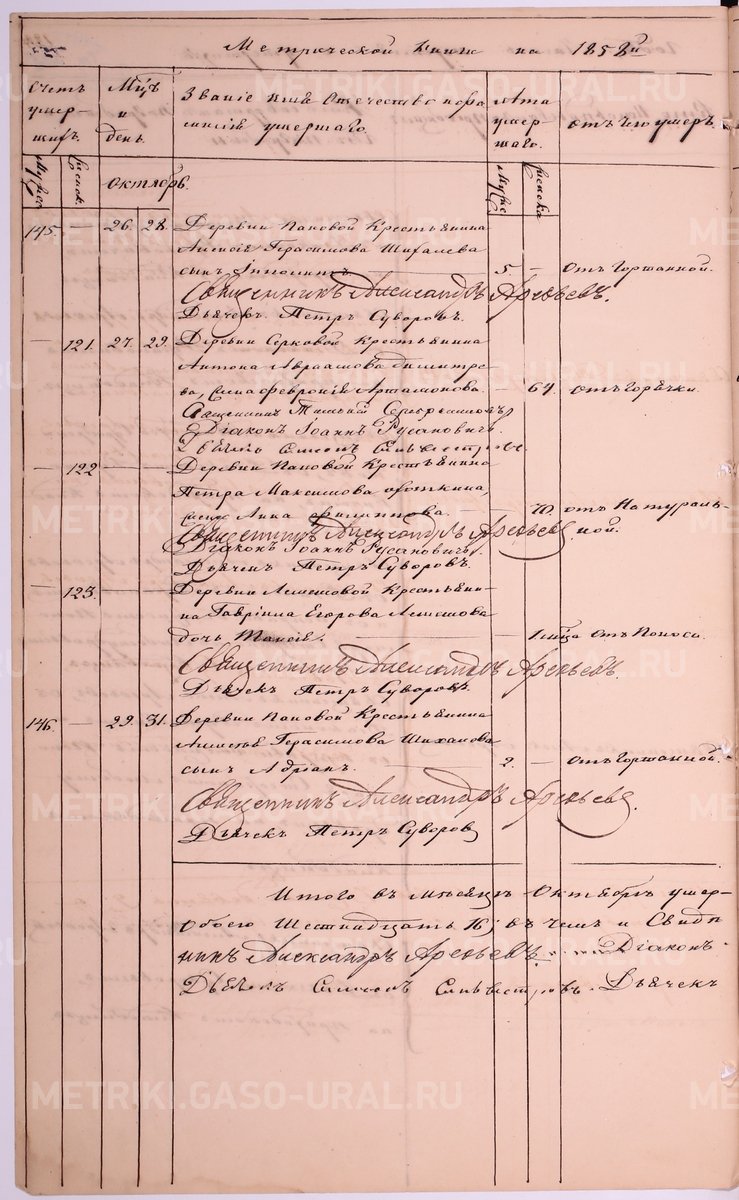 Метрической книги на 1858й
Счетъ умер-шихъ.
Мцъ и день.
Званіе имя отечество и фамилія умершаго.
Лѣта умер-шаго.
отъ чего умеръ.
Мужес
Женск.
Октябрь.
Мужес
Женска
145. — 26. 28. Деревни Пановой Крестьянина
Алексія Герасимова
сынъ Іпполитъ — 5. — отъ Гортанной.
Священникъ Александръ Арефьевъ.
Дьячекъ Петръ Суворовъ.
— 121. 27. 29. Деревни Серковой Крестьянина
Антона Авраамова Димитріе-
ва, жена Февронія Артамонова. — 64. отъ Горячки.
Священникъ
Діаконъ Іоаннъ Русановичъ.
Симеонъ
— 122 — — Деревни Пановой Крестьянина
Петра Максимова
жена Анна Филиппова. — 70. отъ Натураль-
ной.
Священникъ Александръ Арефьевъ
Діаконъ Іоаннъ Русановичъ.
Дьячекъ Петръ Суворовъ.
— 123. — — Деревни Крестьяни-
на Гавріила Егорова
дочь Таисія. — 1 мца отъ Поноса.
Священникъ Александръ Арефьевъ.
Дьячекъ Петръ Суворовъ.
146. — 29. 31. Деревни Пановой Крестьянина
Герасимова
сынъ Адріанъ. 2. — отъ Гортанной.
Священникъ Александръ Арефьевъ
Дьячекъ Петръ Суворовъ
Итого въ мѣсяцѣ Октябрѣ умер-
обоего Шестнадцать 16, въ чемъ и Свидѣ
никъ Александръ Арефьевъ. Діаконъ
Симеонъ Дьячекъ
METRIKI.GASO-URAL.RU